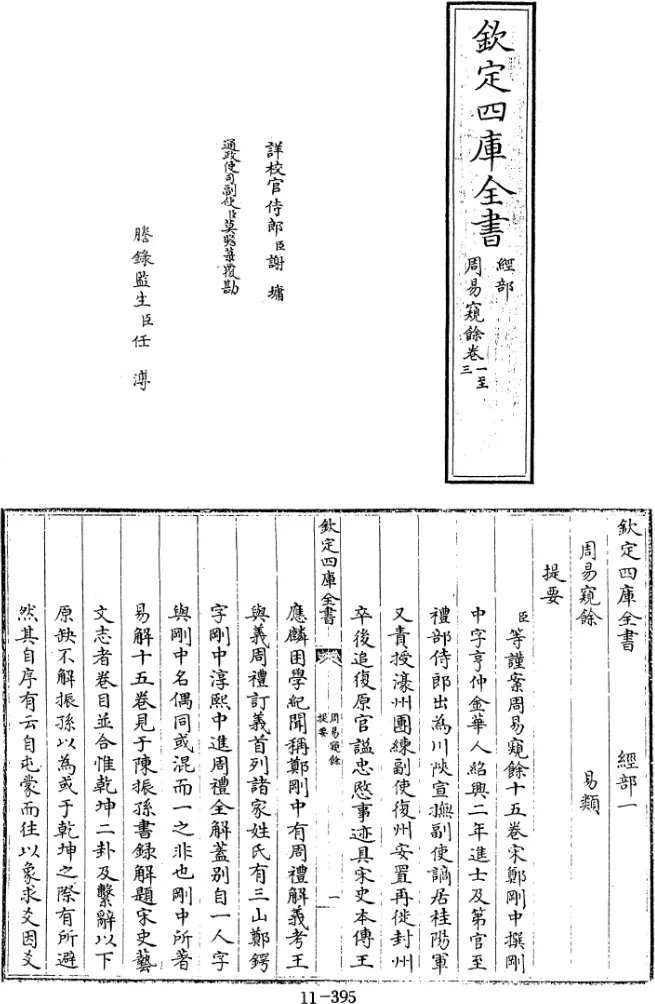 欽定四庫全書
經部
周易窺餘卷一至三
詳校官侍郎臣謝墉
通政使司副使臣莫瞻菉覆勘
謄錄監生臣任溥
欽定四庫全書　經部一
周易窺餘　易類
提要
臣等謹案周易窺餘十五卷宋鄭剛中撰剛
中字亨仲金華人紹興二年進士及第官至
禮部侍郎出為川陜宣撫副使謫居桂陽軍
又責授濠州團練副使復州安置再徙封州
卒後追復原官諡忠愍事迹具宋史本傳王
欽定四庫全書
周易窺餘
提要
一
應麟困學紀聞稱鄭剛中有周禮解義考王
與義周禮訂義首列諸家姓氏有三山鄭鍔
字剛中淳熙中進周禮全解蓋别自一人字
與剛中名偶同或混而一之非也剛中所著
易解十五卷見于陳振孫書録解題宋史藝
文志者卷目並合惟乾坤二卦及繫辭以下
原缺不解振孫以為或于乾坤之際有所避
然其自序有云自屯蒙而往以象求爻因爻
11-395